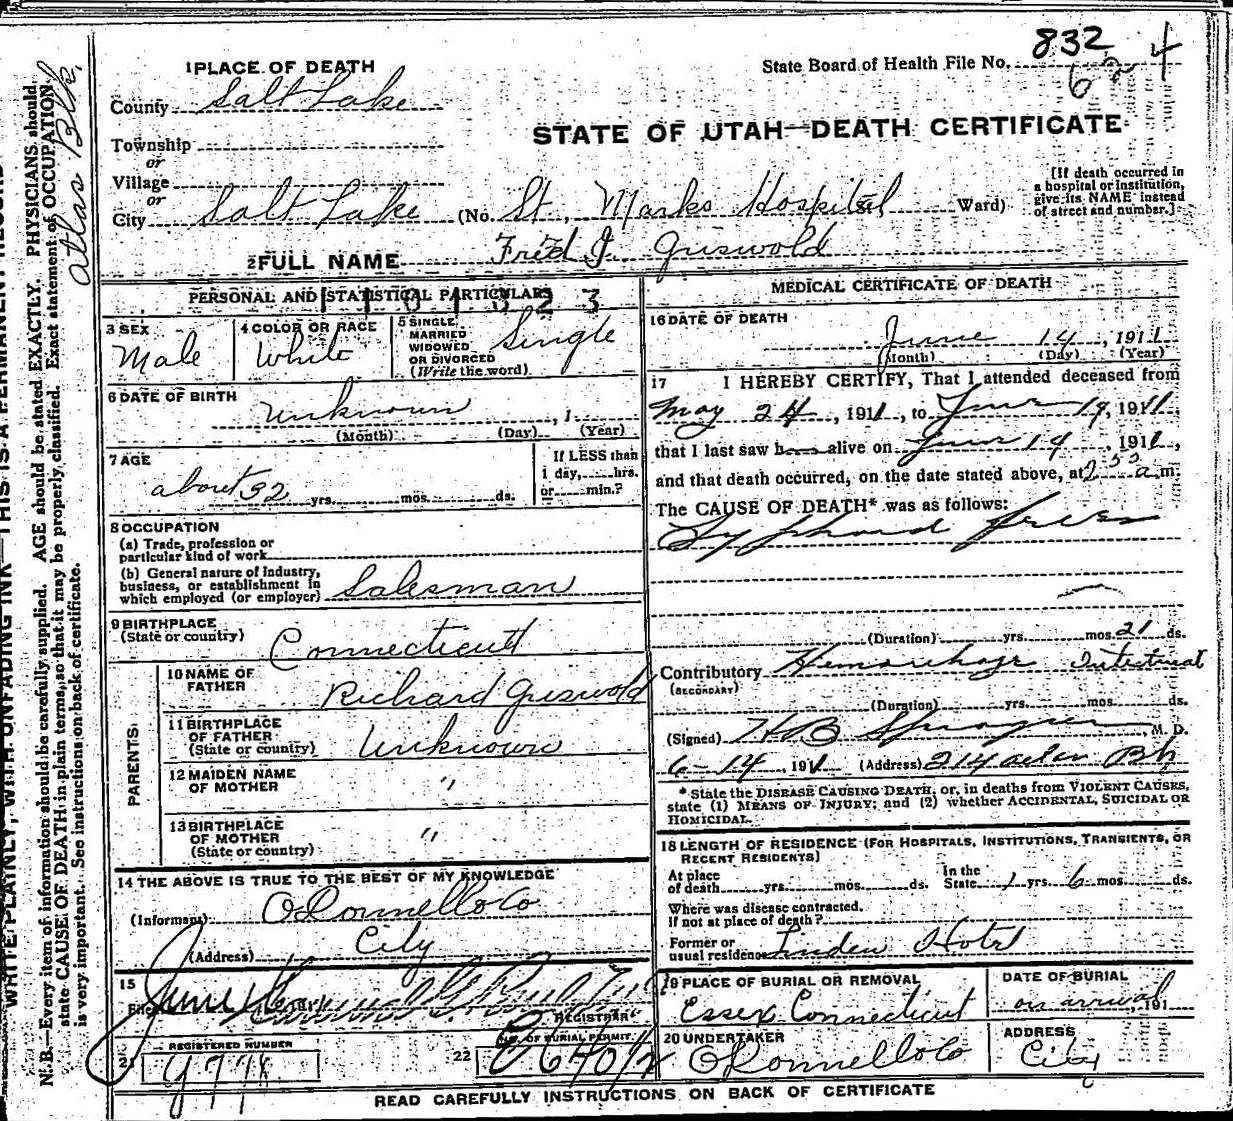 832
6
4
State Board of Health File No.
1 PLACE OF DEATH
County Salt Lake
STATE OF UTAH—DEATH CERTIFICATE
Township
or
Village
or
City Salt Lake (No. St. Marks Hospital Ward)
[If death occurred in
a hospital or institution,
give its NAME instead
of street and number.]
2 FULL NAME Fred J. Griswold
PERSONAL AND STATISTICAL PARTICULARS
3 SEX
Male
4 COLOR OR RACE
White
5 SINGLE
MARRIED
WIDOWED
OR DIVORCED
(Write the word)
Single
6 DATE OF BIRTH
Unknown , 1
(Month) (Day) (Year)
7 AGE
about 32 yrs. mos. ds.
If LESS than
1 day, hrs.
or min.?
8 OCCUPATION
(a) Trade, profession or
particular kind of work
(b) General nature of industry,
business, or establishment in
which employed (or employer) Salesman
9 BIRTHPLACE
(State or country) Connecticutt
PARENTS
10 NAME OF
FATHER Richard Griswold
11 BIRTHPLACE
OF FATHER
(State or country) Unknown
12 MAIDEN NAME
OF MOTHER "
13 BIRTHPLACE
OF MOTHER
(State or country) "
14 THE ABOVE IS TRUE TO THE BEST OF MY KNOWLEDGE
(Informant) O'Donnell & Co
(Address) City
15
Filed June
REGISTRAR
REGISTERED NUMBER
21
22
NO. OF BURIAL PERMIT
MEDICAL CERTIFICATE OF DEATH
16 DATE OF DEATH
June 14, 1911
(Month) (Day) (Year)
17 I HEREBY CERTIFY, That I attended deceased from
May 24, 1911, to June 14, 1911,
that I last saw h alive on June 14, 1911,
and that death occurred, on the date stated above, at 2 55 a m.
The CAUSE OF DEATH* was as follows:
Typhoid fever
(Duration) yrs. mos. 21 ds.
Contributory Hemorrhage Intestinal
(SECONDARY)
(Duration) yrs. mos. ds.
(Signed) H B Sprague, M. D.
6-14, 191 (Address) 214 Atlas Blk
* State the DISEASE CAUSING DEATH, or, in deaths from VIOLENT CAUSES,
state (1) MEANS OF INJURY; and (2) whether ACCIDENTAL, SUICIDAL OR
HOMICIDAL.
18 LENGTH OF RESIDENCE (FOR HOSPITALS, INSTITUTIONS, TRANSIENTS, OR
RECENT RESIDENTS)
At place
of death yrs. mos. ds.
In the
State 1 yrs. 6 mos. ds.
Where was disease contracted,
if not at place of death?
Former or
usual residence Linden Hotel
19 PLACE OF BURIAL OR REMOVAL
Essex Connecticut
DATE OF BURIAL
on arrival 191
20 UNDERTAKER
O'Donnell & Co
ADDRESS
City
READ CAREFULLY INSTRUCTIONS ON BACK OF CERTIFICATE
WRITE PLAINLY, WITH UNFADING INK—THIS IS A PERMANENT RECORD
N. B.—Every item of information should be carefully supplied. AGE should be stated EXACTLY. PHYSICIANS should
state CAUSE OF DEATH in plain terms, so that it may be properly classified. Exact statement of OCCUPATION
is very important. See instructions on back of certificate.
Atlas Blk.